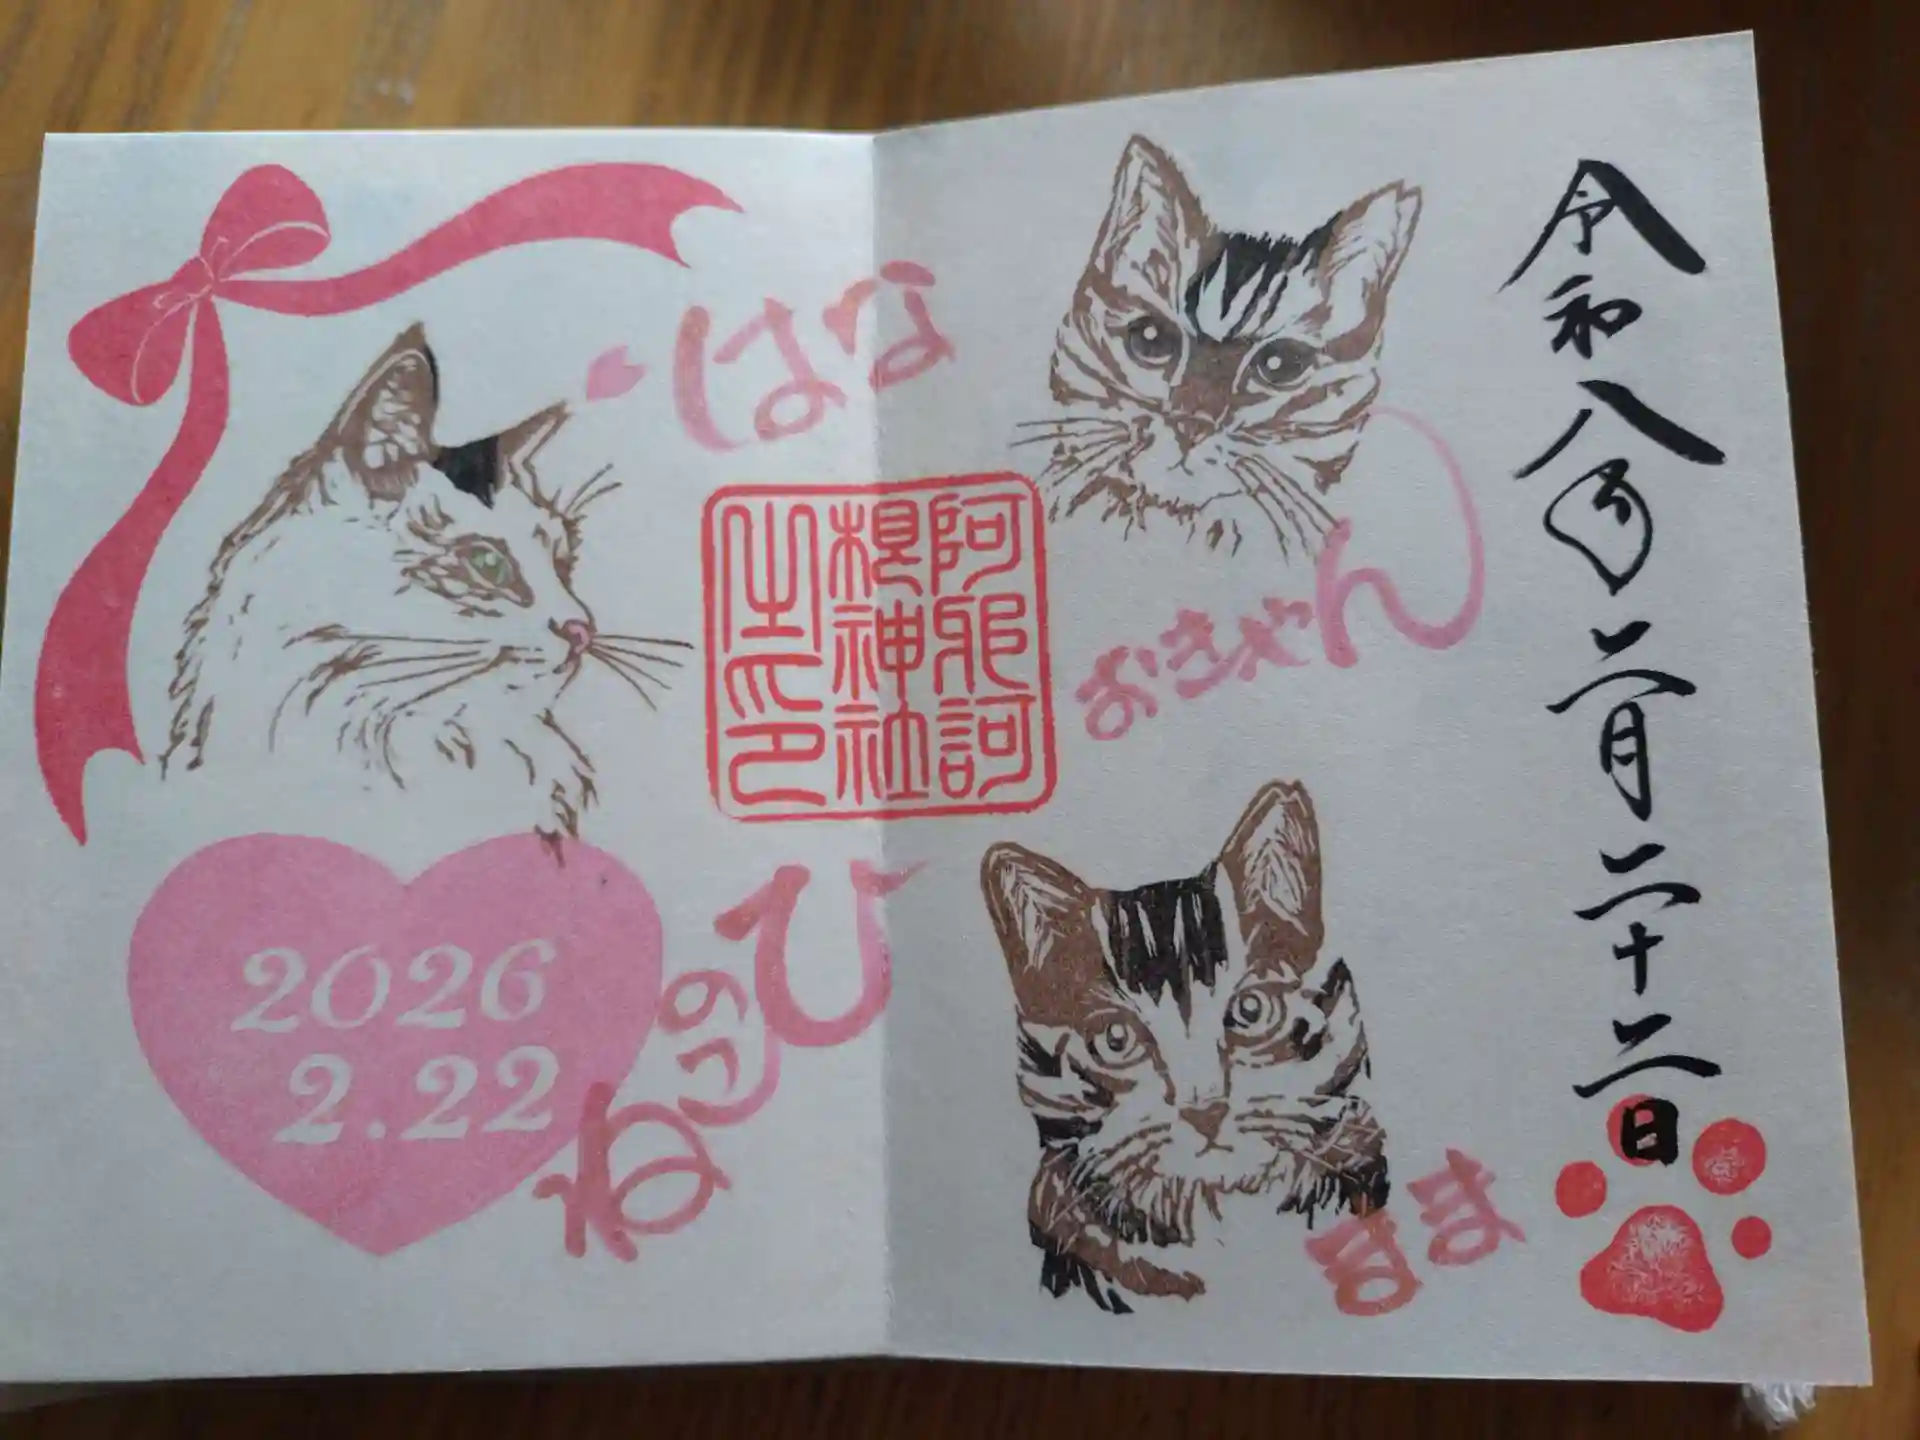 令和八年二月二十二日
はな
おきゃん
阿邪訶
根神社
之印
ねこのひ
2026
2.22